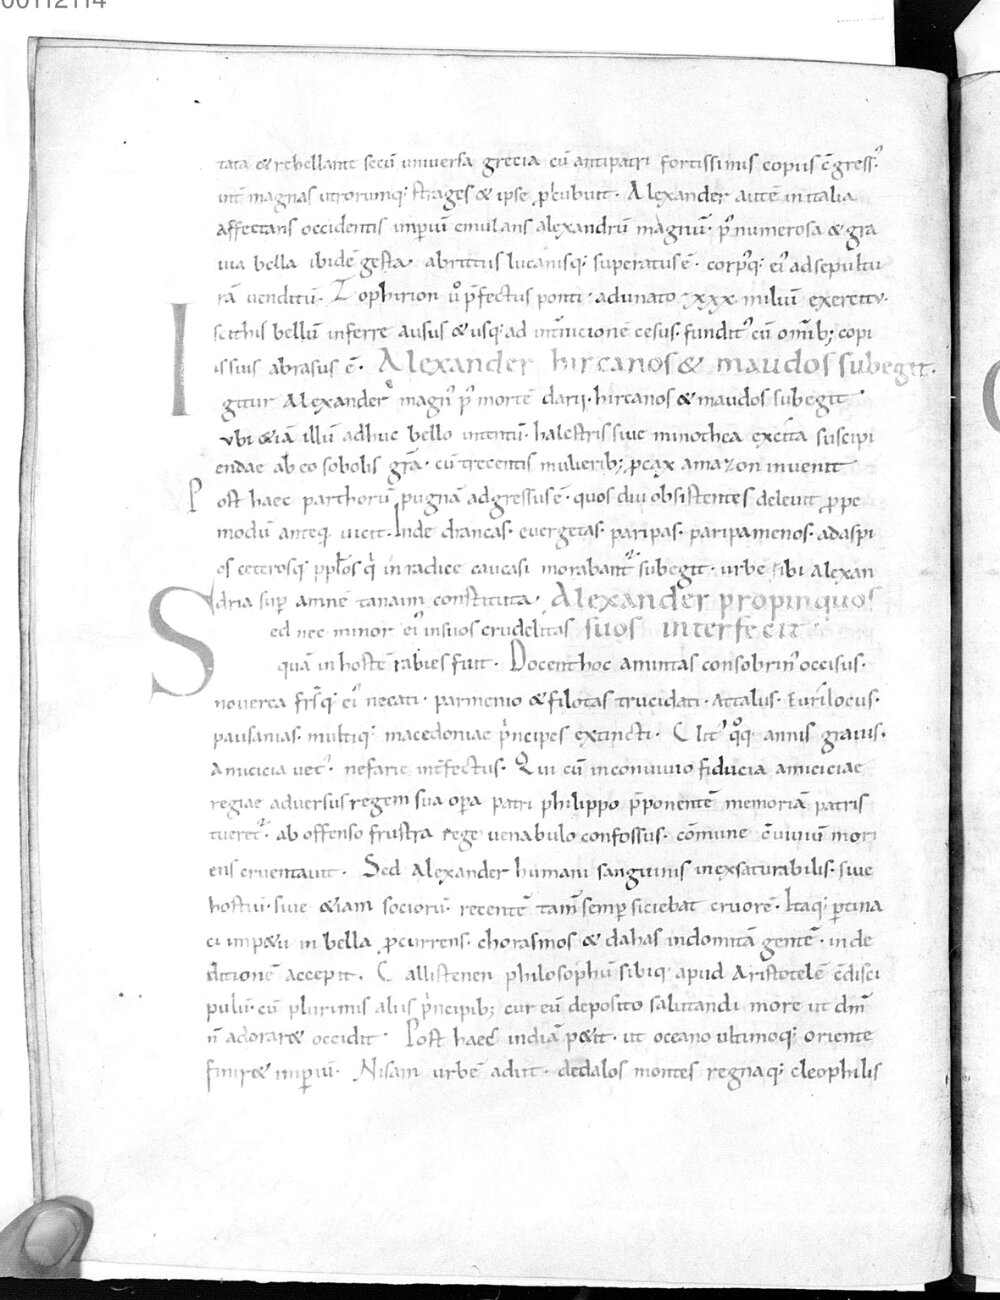 00112114
tata & rebellante secū uniuersa grecia cū antipatri fortissimis copiis c̄gress᾽
int̄ magnas utrorumq; strages & ipse ꝓcubuit. Alexander autē in italia
affectans occidentis imꝑiū emulans alexandrū magnū. p᾽ numerosa & gra
uia bella ibidē gesta abrutiis lucanisq; superatus ē. corpq; ei᾽ ad sepultu
rā uenditū. Zophirion ů p̄fectus ponti adunato xxx miliū exercitu.
scithis bellū inferre ausus & usq; ad int̄nicionē cesus. fundit᾽ cū omīb; copi
is suis abrasus ē. Alexander hircanos & maudos subegit.
Igitur Alexander magn᾽ p᾽ mortē darii. hircanos & maudos subegit
ubi &iā illū adhuc bello intentū. halestris siue minothea excita suscipi
endae ab eo sobolis gr̄a. cū trecentis mulierib; ꝓcax amazon inuenit
Post haec parthorū pugnā adgressus ē. quos diu obsistentes deleuit ꝓpe
modū anteq uicit. Inde drancas. euergetas. paripas. paripamenos. adaspi
os ceterosq; ppl̄os q᾽ in radice caucasi morabant᾽ subegit. urbe ibi alexan
dria suꝑ amnē tanaim constituta. Alexander propinquos
Sed nec minor ei᾽ in suos crudelitas suos interfecit
quā in hostē rabies fuit. Docent hoc amintas consobrin᾽ occisus.
nouerca fr̄sq; ei᾽ necati. parmenio & filotas trucidati. Attalus. Eurilocus.
pausanias. multiq; macedoniae p᾽ncipes extincti. Clit᾽ qoq annis grauis.
Amicicia uet᾽. nefarie int̄fectus. Qui cū in conuiuio fiducia amiciciae
regiae aduersus regem sua opa patri philippo p̄ponentē memoriā patris
tueret᾽. ab offenso frustra rege uenabulo confossus. cōmune c̄uiuiū mori
ens cruentauit. Sed Alexander humani sanguinis inexsaturabilis. siue
hostiū. siue &iam sociorū. recentē tam̄ semꝑ siciebat cruorē. Itaq; ꝑtina
ci imp&u in bella ꝓcurrens. chorasmos & dahas indomitā gentē. in de
ditionē accepit. Callistenen philosophū sibiq; apud Aristotelē c̄disci
pulū. cū plurimis aliis p᾽ncipib; cur eū deposito salutandi more ut dm̄
n̄ adorar& occidit. Post haec indiā p&it. ut oceano ultimoq; oriente
finir& imꝑiū. Nisam urbē adiit. dedalos montes regnaq; cleophilis